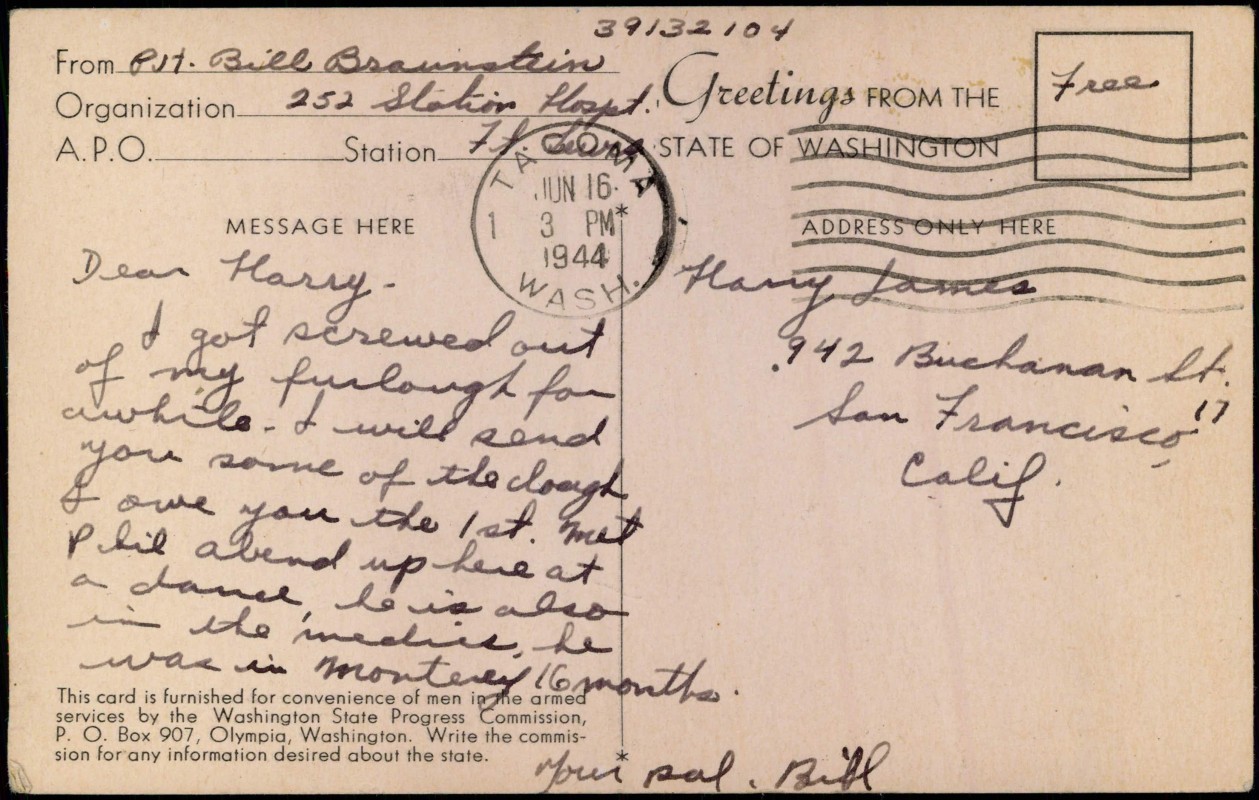 39132104
From Pvt. Bill Braunstein
Organization 252 Station Hospt.
A.P.O. Station Ft. Lewis
Greetings FROM THE
STATE OF WASHINGTON
Free
TACOMA
JUN 16
1 3 PM
1944
WASH.
MESSAGE HERE
Dear Harry-
I got screwed out
of my furlough for
awhile. I will send
you some of the dough
I owe you the 1st. Met
Phil Abend up here at
a dance, he is also
in the medics, he
was in Monterey 16 months.
Your pal. Bill
This card is furnished for convenience of men in the armed
services by the Washington State Progress Commission,
P. O. Box 907, Olympia, Washington. Write the commis-
sion for any information desired about the state.
ADDRESS ONLY HERE
Harry James
942 Buchanan St.
San Francisco 17
Calif.